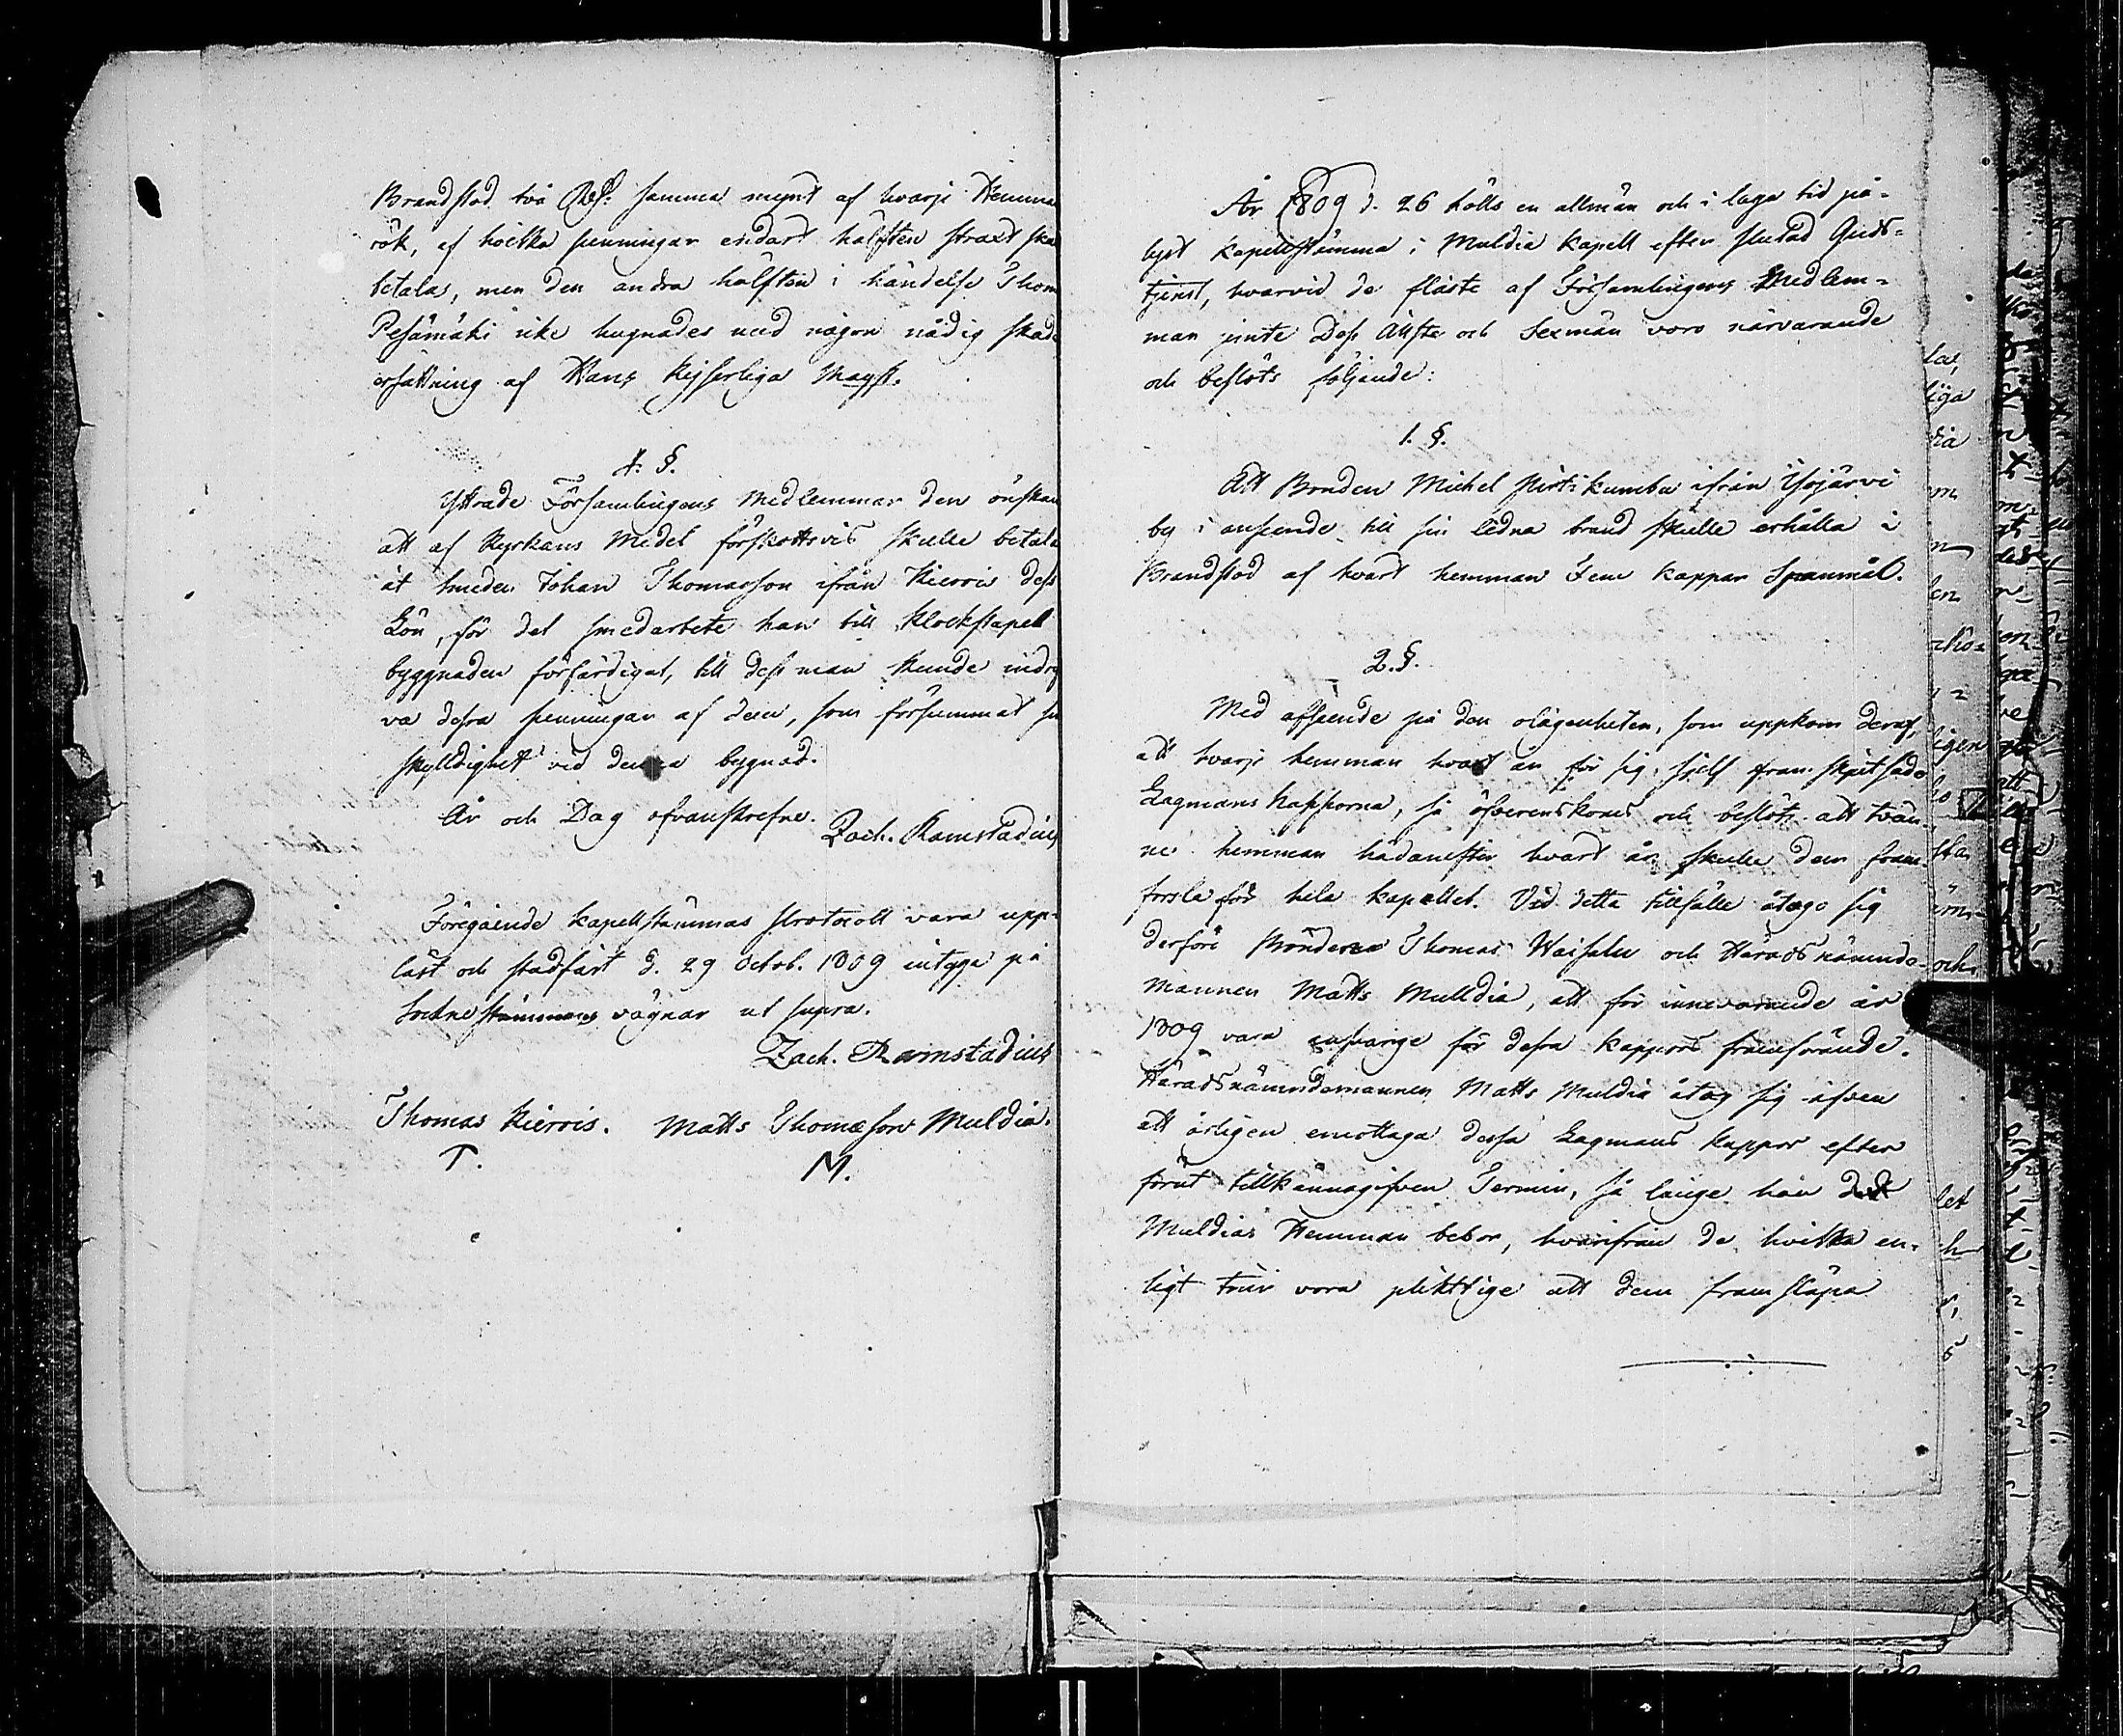 Brandstod två Rdr: samma mynt af hvarje Hemma
rök, af hvilka penningar endast hälften straxt ska
betalas, men den andra hälften i händelse Thom
Pesämäki icke hugnades med någon nådig skade
ersättning af Hans Kejserliga Mayst.
4. §.
Yttrade Församlingens Medlemmar den önskan
att af Kyrkans Medel förskottsvis skulle betala
åt Smeden Johan Thomasson ifrån Kierois dess
Lön, för det smedarbete han till Klockstapel
byggnaden förfärdigat, till dess man kunde indrif
va dessa penningar af dem, som försummat sin
skylldighet vid denna bygnad.
År och Dag ofvanskrefne.
Zach. Ramstadius
Föregående Kapellstämmas Protocoll vara upp-
läst och stadfäst d. 29 Octob. 1809 intyga på
Sockne stämmans vägnar ut supra.
Zach. Ramstadius
Thomas Kierois. Matts Thomasson Muldia.
T. M.
År 1809 d. 26 hölls en allmän och i laga tid på-
lyst Kapellstämma i Muldia Kapell efter slutad Guds-
tjenst, hvarvid de fläste af Församlingens Medlem-
mar jemte Dess Äldste och Sexmän voro närvarande
och beslöts följande:
1. §.
Att Bonden Michel Pirttikumbu ifrån Ysojärvi
by i anseende till sin lidna brand skulle erhålla i
Brandstod af hvart hemman Fem Kappar Spanmål.
2. §.
Med afseende på den olägenheten, som uppkom deraf,
att hvarje hemman hvart år för sig sjelf fram skjutsade
Lagmans Kapporna, så öfverenskoms och beslöts att tvän-
ne hemman hädanefter hvart år skulle dem fram-
forsla för hela Kapellet. Vid detta tillfälle åtogo sig
derföre Bönderne Thomas Haisalu och Härads nämnde-
mannen Matts Mulldia, att för innevarande år
1809 vara ansvarige för dessa Kappors framförande.
Häradsnämndemannen Matts Muldia åtog sig äfven
att årligen emottaga dessa Lagmans Kappor efter
förut tillkännagifven Termin, så länge han
Muldias Hemman bebor, hvarifrån de hvilka en-
ligt tour vora pliktige att dem framsläpa